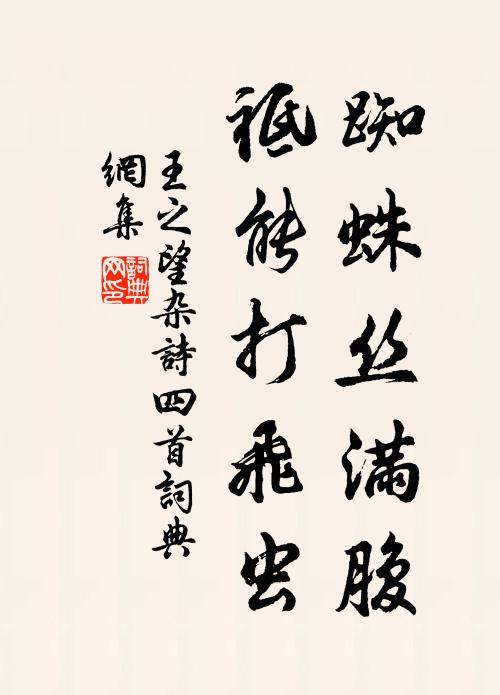 蜘蛛丝满腹
祗能打飛虫
王之望杂詩四首詞典
網集
詞典
网印